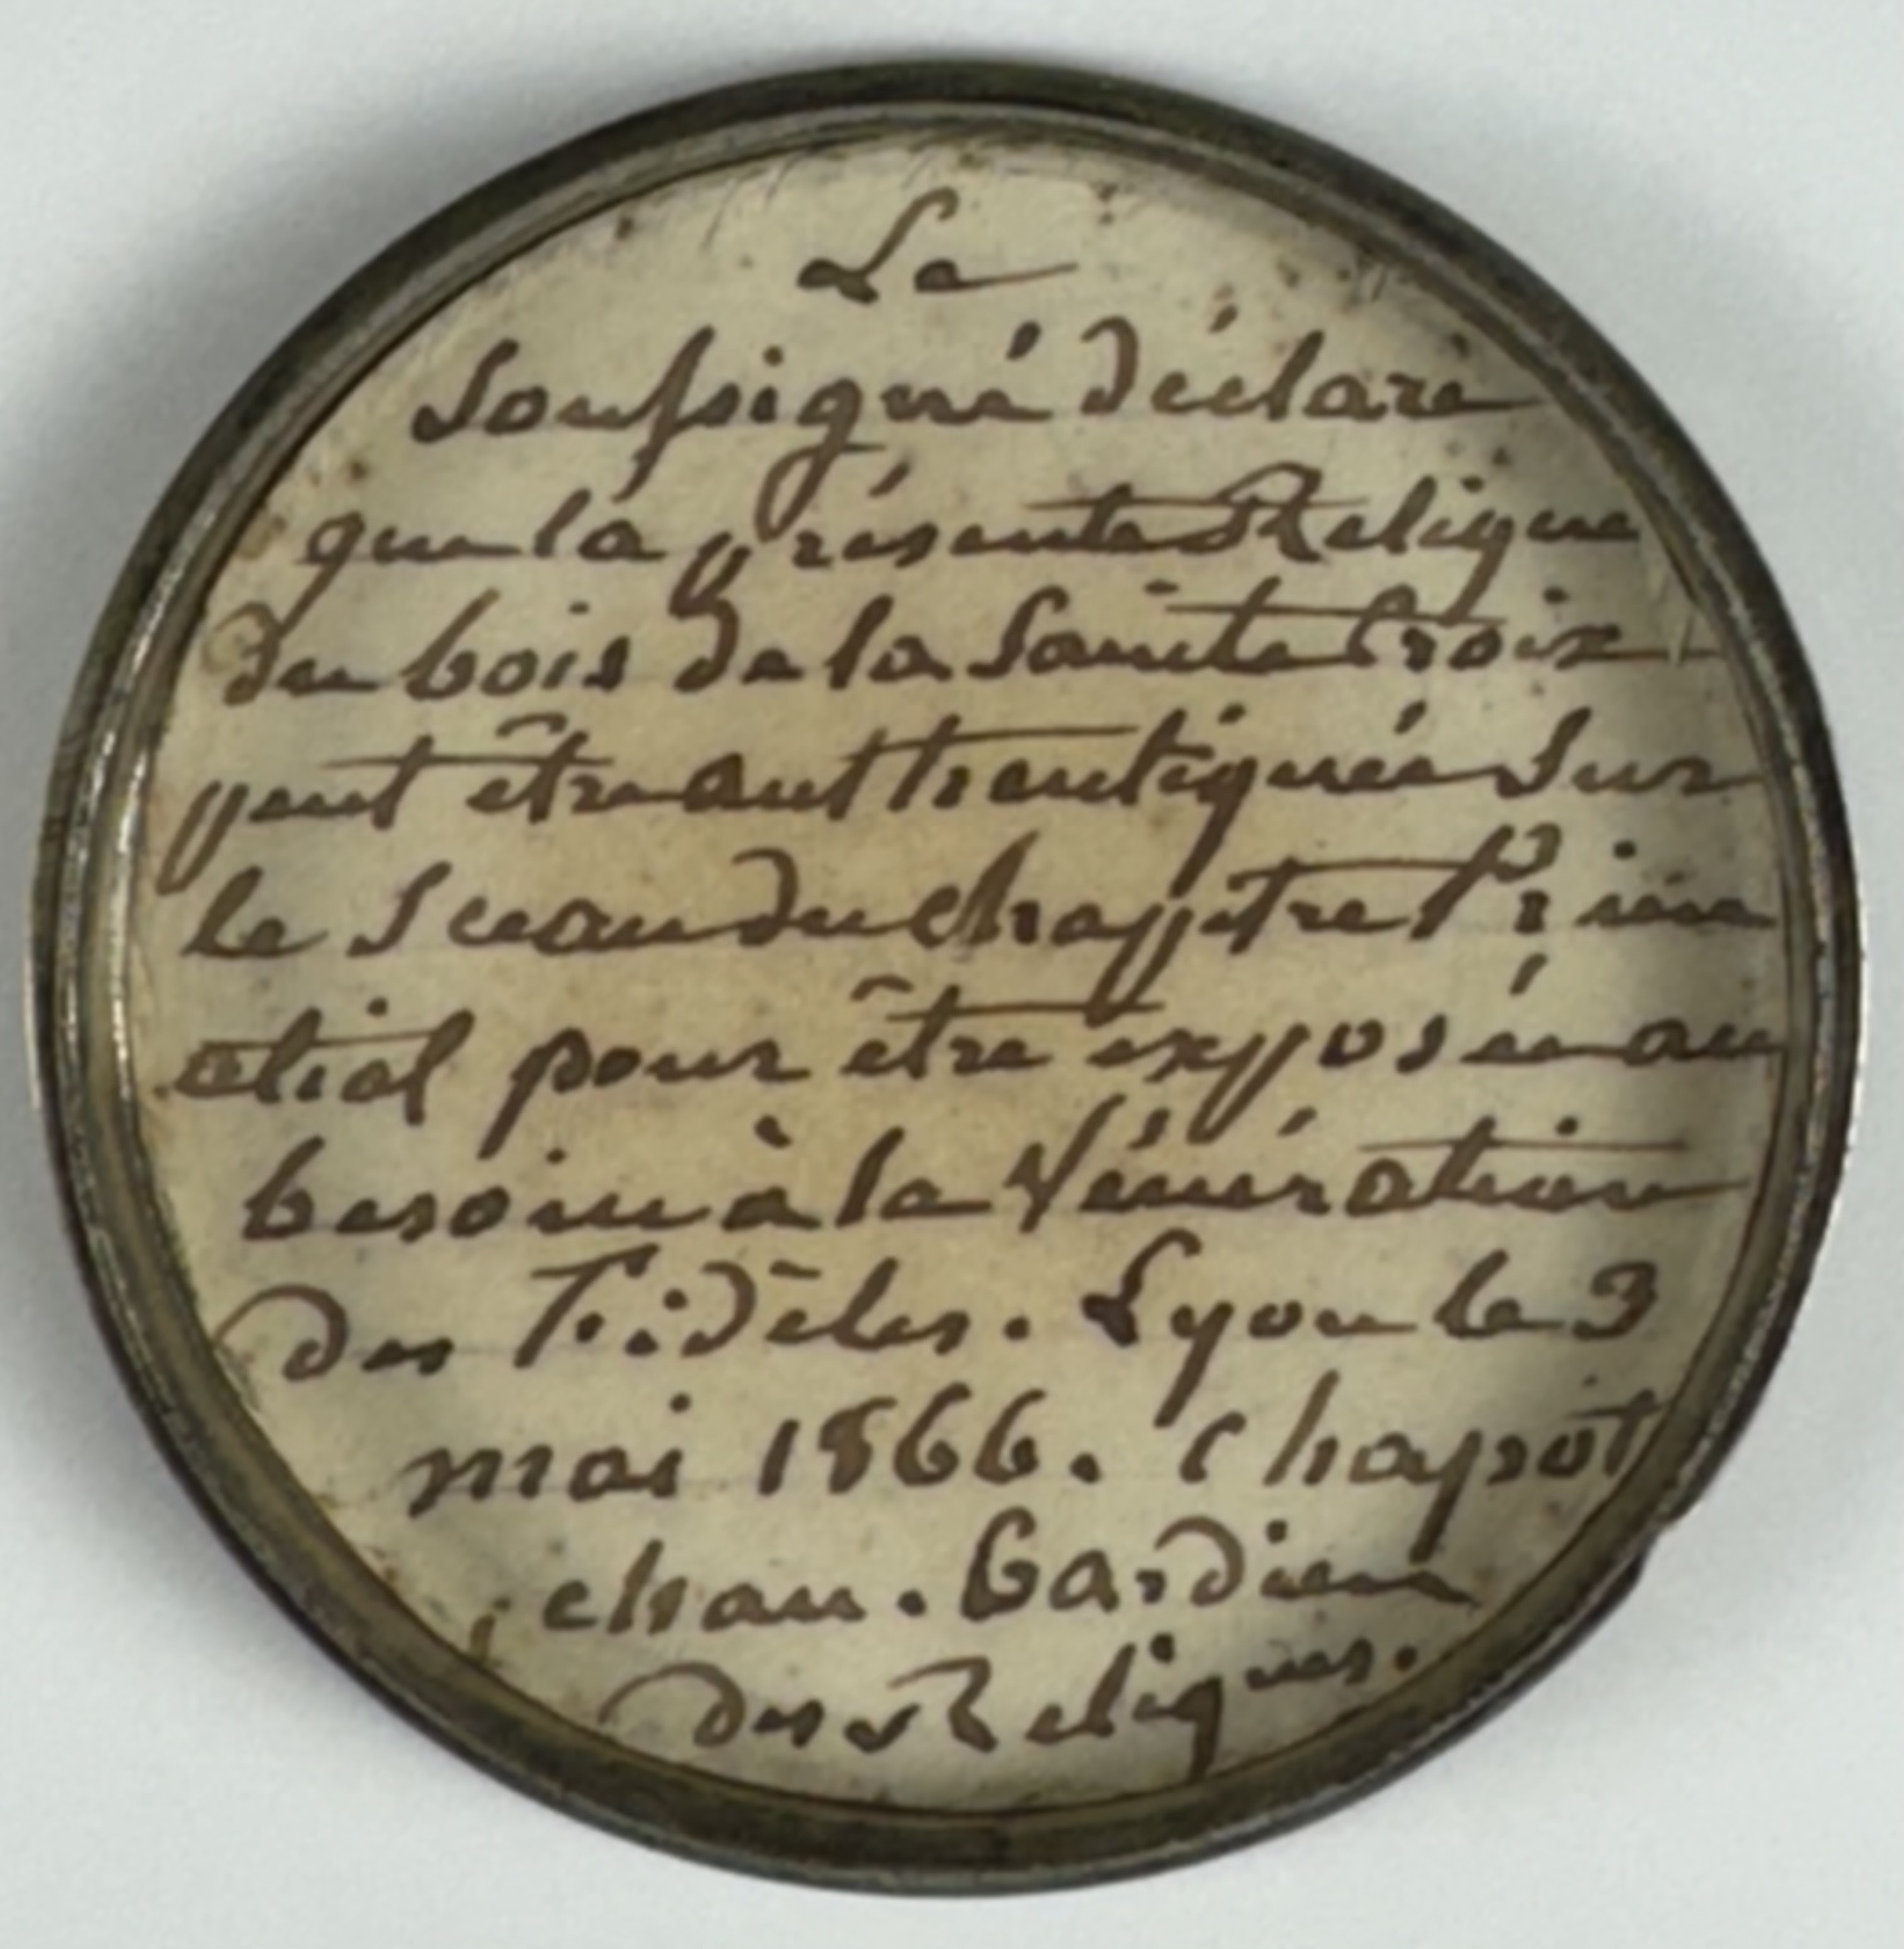 Le
Soussigné déclare
que la présente Relique
du bois de la Sainte Croix
peut être authentiquée sur
le sceau du chapitre Prim
atial pour être exposée au
besoin à la Vénération
des Fidèles. Lyon le 3
mai 1866. Chapot
chan. Gardien
des Reliques.